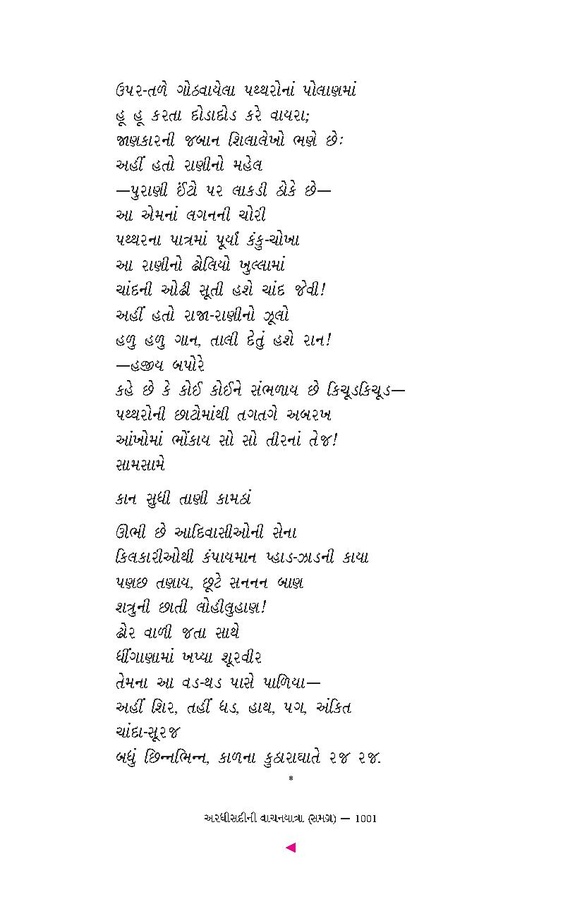 ઉપર-તળે ગોઠવાયેલા પથ્થરોનાં પોલાણમાં
હૂ હૂ કરતા દોડાદોડ કરે વાયરા;
જાણકારની જબાન શિલાલેખો ભણે છેઃ
અહીં હતો રાણીનો મહેલ
—પુરાણી ઈંટો પર લાકડી ઠોકે છે—
આ એમનાં લગનની ચોરી
પથ્થરના પાત્રમાં પૂર્યાં કંકુ-ચોખા
આ રાણીનો ઢોલિયો ખુલ્લામાં
ચાંદની ઓઢી સૂતી હશે ચાંદ જેવી!
અહીં હતો રાજા-રાણીનો ઝૂલો
હળુ હળુ ગાન, તાલી દેતું હશે રાન!
—હજીય બપોરે
કહે છે કે કોઈ કોઈને સંભળાય છે કિચૂડકિચૂડ—
પથ્થરોની છાટોમાંથી તગતગે અબરખ
આંખોમાં ભોંકાય સો સો તીરનાં તેજ!
સામસામે
કાન સુધી તાણી કામઠાં
ઊભી છે આદિવાસીઓની સેના
કિલકારીઓથી કંપાયમાન પ્હાડ-ઝાડની કાયા
પણછ તણાય, છૂટે સનનન બાણ
શત્રુની છાતી લોહીલુહાણ!
ઢોર વાળી જતા સાથે
ધીંગાણામાં ખપ્યા શૂરવીર
તેમના આ વડ-થડ પાસે પાળિયા—
અહીં શિર, તહીં ધડ, હાથ, પગ, અંકિત
ચાંદા-સૂરજ
બધું છિન્નભિન્ન, કાળના કુઠારાઘાતે રજ રજ.
*
અરધીસદીની વાચનયાત્રા (સમગ્ર) — 1001